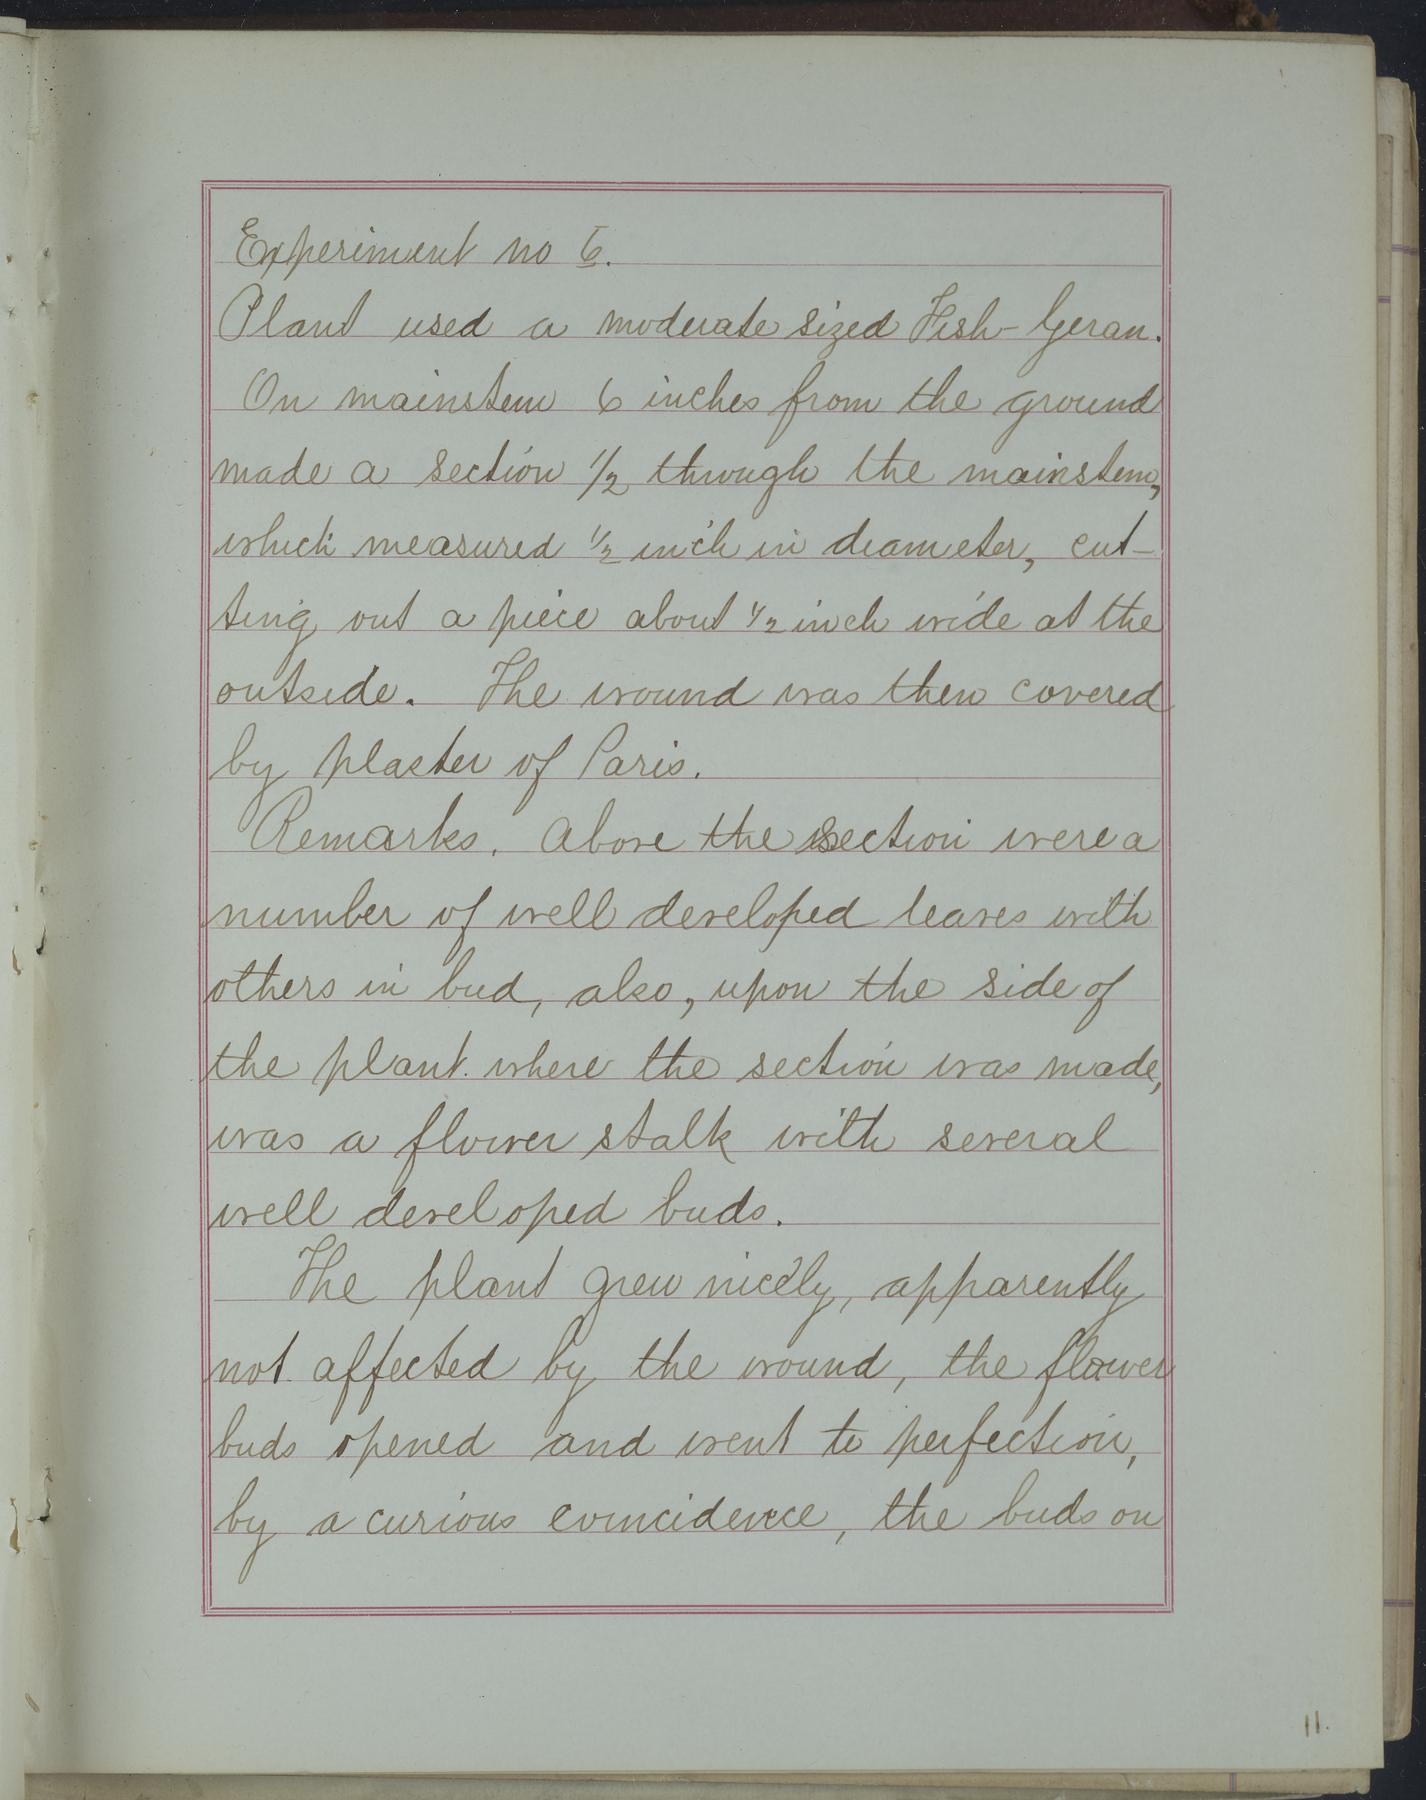 Experiment no 6.
Plant used a moderate sized Fish-Geran.
On mainstem 6 inches from the ground
made a section 1/2 through the mainstem,
which measured 1/2 inch in diameter, cut-
ting out a piece about 1/2 inch wide at the
outside. The wound was then covered
by plaster of Paris.
Remarks. Above the section were a
number of well developed leaves with
others in bud, also, upon the side of
the plant where the section was made,
was a flower stalk with several
well developed buds.
The plant grew nicely, apparently
not affected by the wound, the flower
buds opened and went to perfection,
by a curious coincidence, the buds on
11.